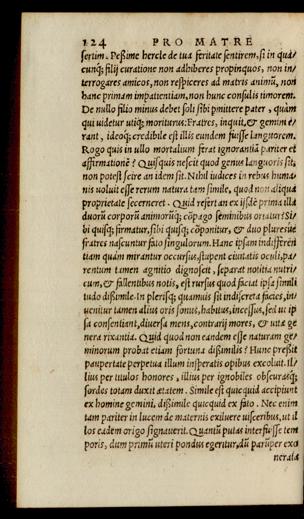 124 PRO MATRE
sertim. Peßime hercle de tua feritate sentirem, si in quã
cunq; filij curatione non adhiberes propinquos, non in/
terrogares amicos, non respiceres ad matris animũ, non
hanc primam impatientiam, non hunc consulis timorem.
De nullo filio minus debet soli sibi pmittere pater, quàm
qui uidetur utiq; moriturus. Fratres, inquit, & gemini e/
rant, ideoq; credibile est illis eundem fuisse languorem.
Rogo quis in ullo mortalium ferat ignorantiã pariter et
affirmationẽ? Quisquis nescit quod genus languoris sit,
non potest scire an idem sit. Nihil iudices in rebus huma
nis uoluit esse rerum natura tam simile, quod non aliqua
proprietate secerneret. Quid refert an ex ijsdẽ prima illa
duorũ corporũ animorũq; cõpago seminibus oriatur? Si/
bi quisq; firmatur, sibi quisq; cõponitur, & duo pluresue
fratres nascuntur fato singulorum. Hanc ipsam indifferẽ
tiam quàm mirantur occursus, stupent ciuitatis oculi, pa/
rentum tamen agnitio dignoscit, separat notitia nutri/
cum, & fallentibus notis, est rursus quod faciat ipsa simili
tudo dißimile. In plerisq; quamuis sit indiscreta facies, in/
uenitur tamen alius oris sonus, habitus, incessus, sed ut ip
sa consentiant, diuersa mens, contrarij mores, & uitæ ge
nera rixantia. Quid quod non eandem esse naturam ge/
minorum probat etiam fortuna dißimilis? Hunc preßit
paupertate perpetua illum insperatis opibus excoluit. Il/
lius per titulos honores, illius per ignobiles obscurasq;
sordes totam duxit ætatem. Simile est quicquid accipiunt
ex homine gemini, dißimile quicquid ex fato. Nec enim
tam pariter in lucem de maternis exiluere uisceribus, ut il
los eadem origo signauerit. Quantũ putas interfuisse tem
poris, dum primũ uteri pondus egeritur, dũ parũper exo
nerata